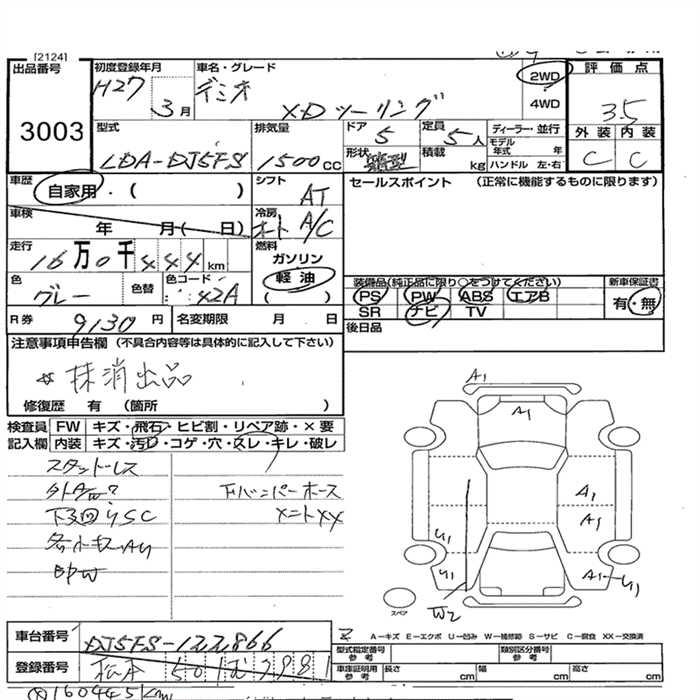 [2124]
出品番号
3003
初度登録年月
H27
3月
車名・グレード
デミオ
XDツーリング
2WD
4WD
評価点
3.5
外装 内装
C C
型式
LDA-DJ5FS
排気量
1500cc
ドア
5
定員
5人
形状 箱型
積載 kg
ディーラー・並行
モデル年式 年
ハンドル 左・右
車歴
自家用・( )
シフト
AT
車検
年 月( 日)
冷房
オート A/C
走行
16万0千444km
燃料
ガソリン
軽油
( )
色
グレー
色替
色コード
42A
R券 9130円
名変期限 月 日
セールスポイント (正常に機能するものに限ります)
装備品(純正品に限り○をつけてください)
PS PW ABS エアB
SR ナビ TV
新車保証書
有・無
後日品
注意事項申告欄(不具合内容等は具体的に記入して下さい)
☆抹消出品
修復歴 有 (箇所 )
検査員 FW キズ・飛石・ヒビ割・リペア跡・×要
記入欄 内装 キズ・汚D・コゲ・穴・スレ・キレ・破レ
スタッドレス
下回りSC
各小キズAU
Fバンパーホース
A1
A1
A1
A1
U1
U1
A1 U1
W2
スペア
A-キズ E-エクボ U-凹み W-補修跡 S-サビ C-腐食 XX-交換済
車台番号 DJ5FS-122866
登録番号 松本 501
型式指定番号 参考
類別区分番号 参考
車庫証明用 参考
長さ cm
幅 cm
高さ cm
160445km